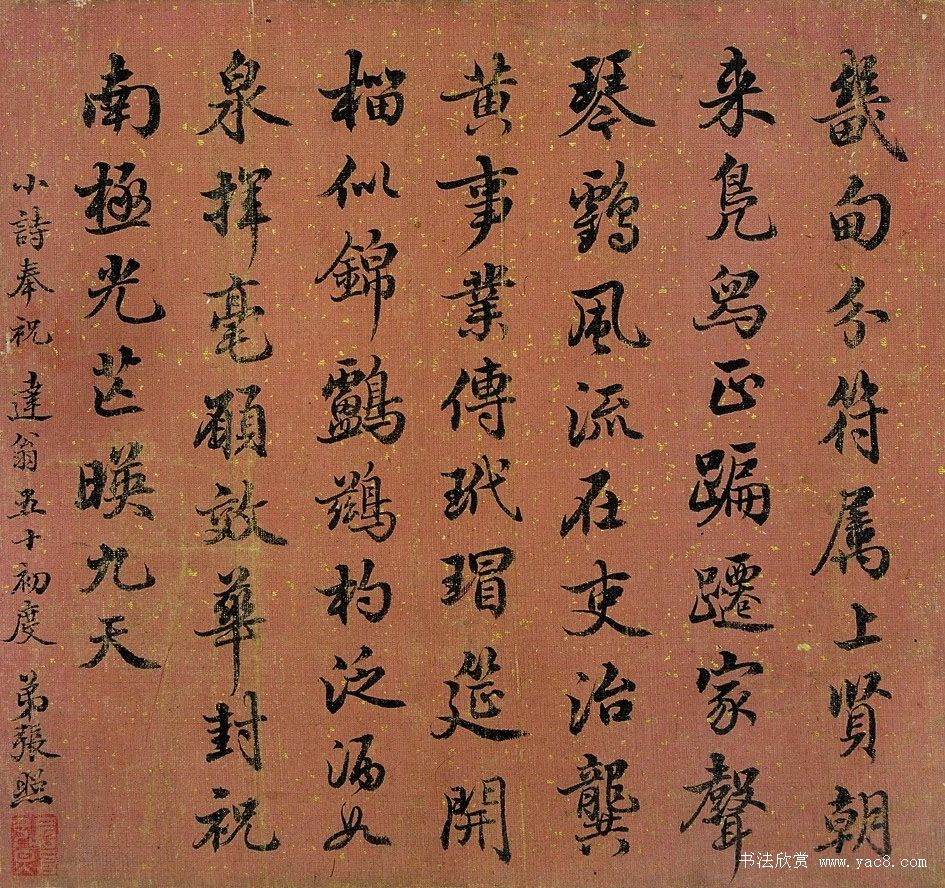 畿甸分符屬上賢朝
来凫舄正蹁躚家聲
琴鶴風流在吏治龔
黄事業傳玳瑁筵開
榴似錦鸕鷀杓泛酒如
泉揮毫願效華封祝
南極光芒暎九天
小詩奉祝 達翁五十初度 弟張照
书法欣赏 www.yac8.com